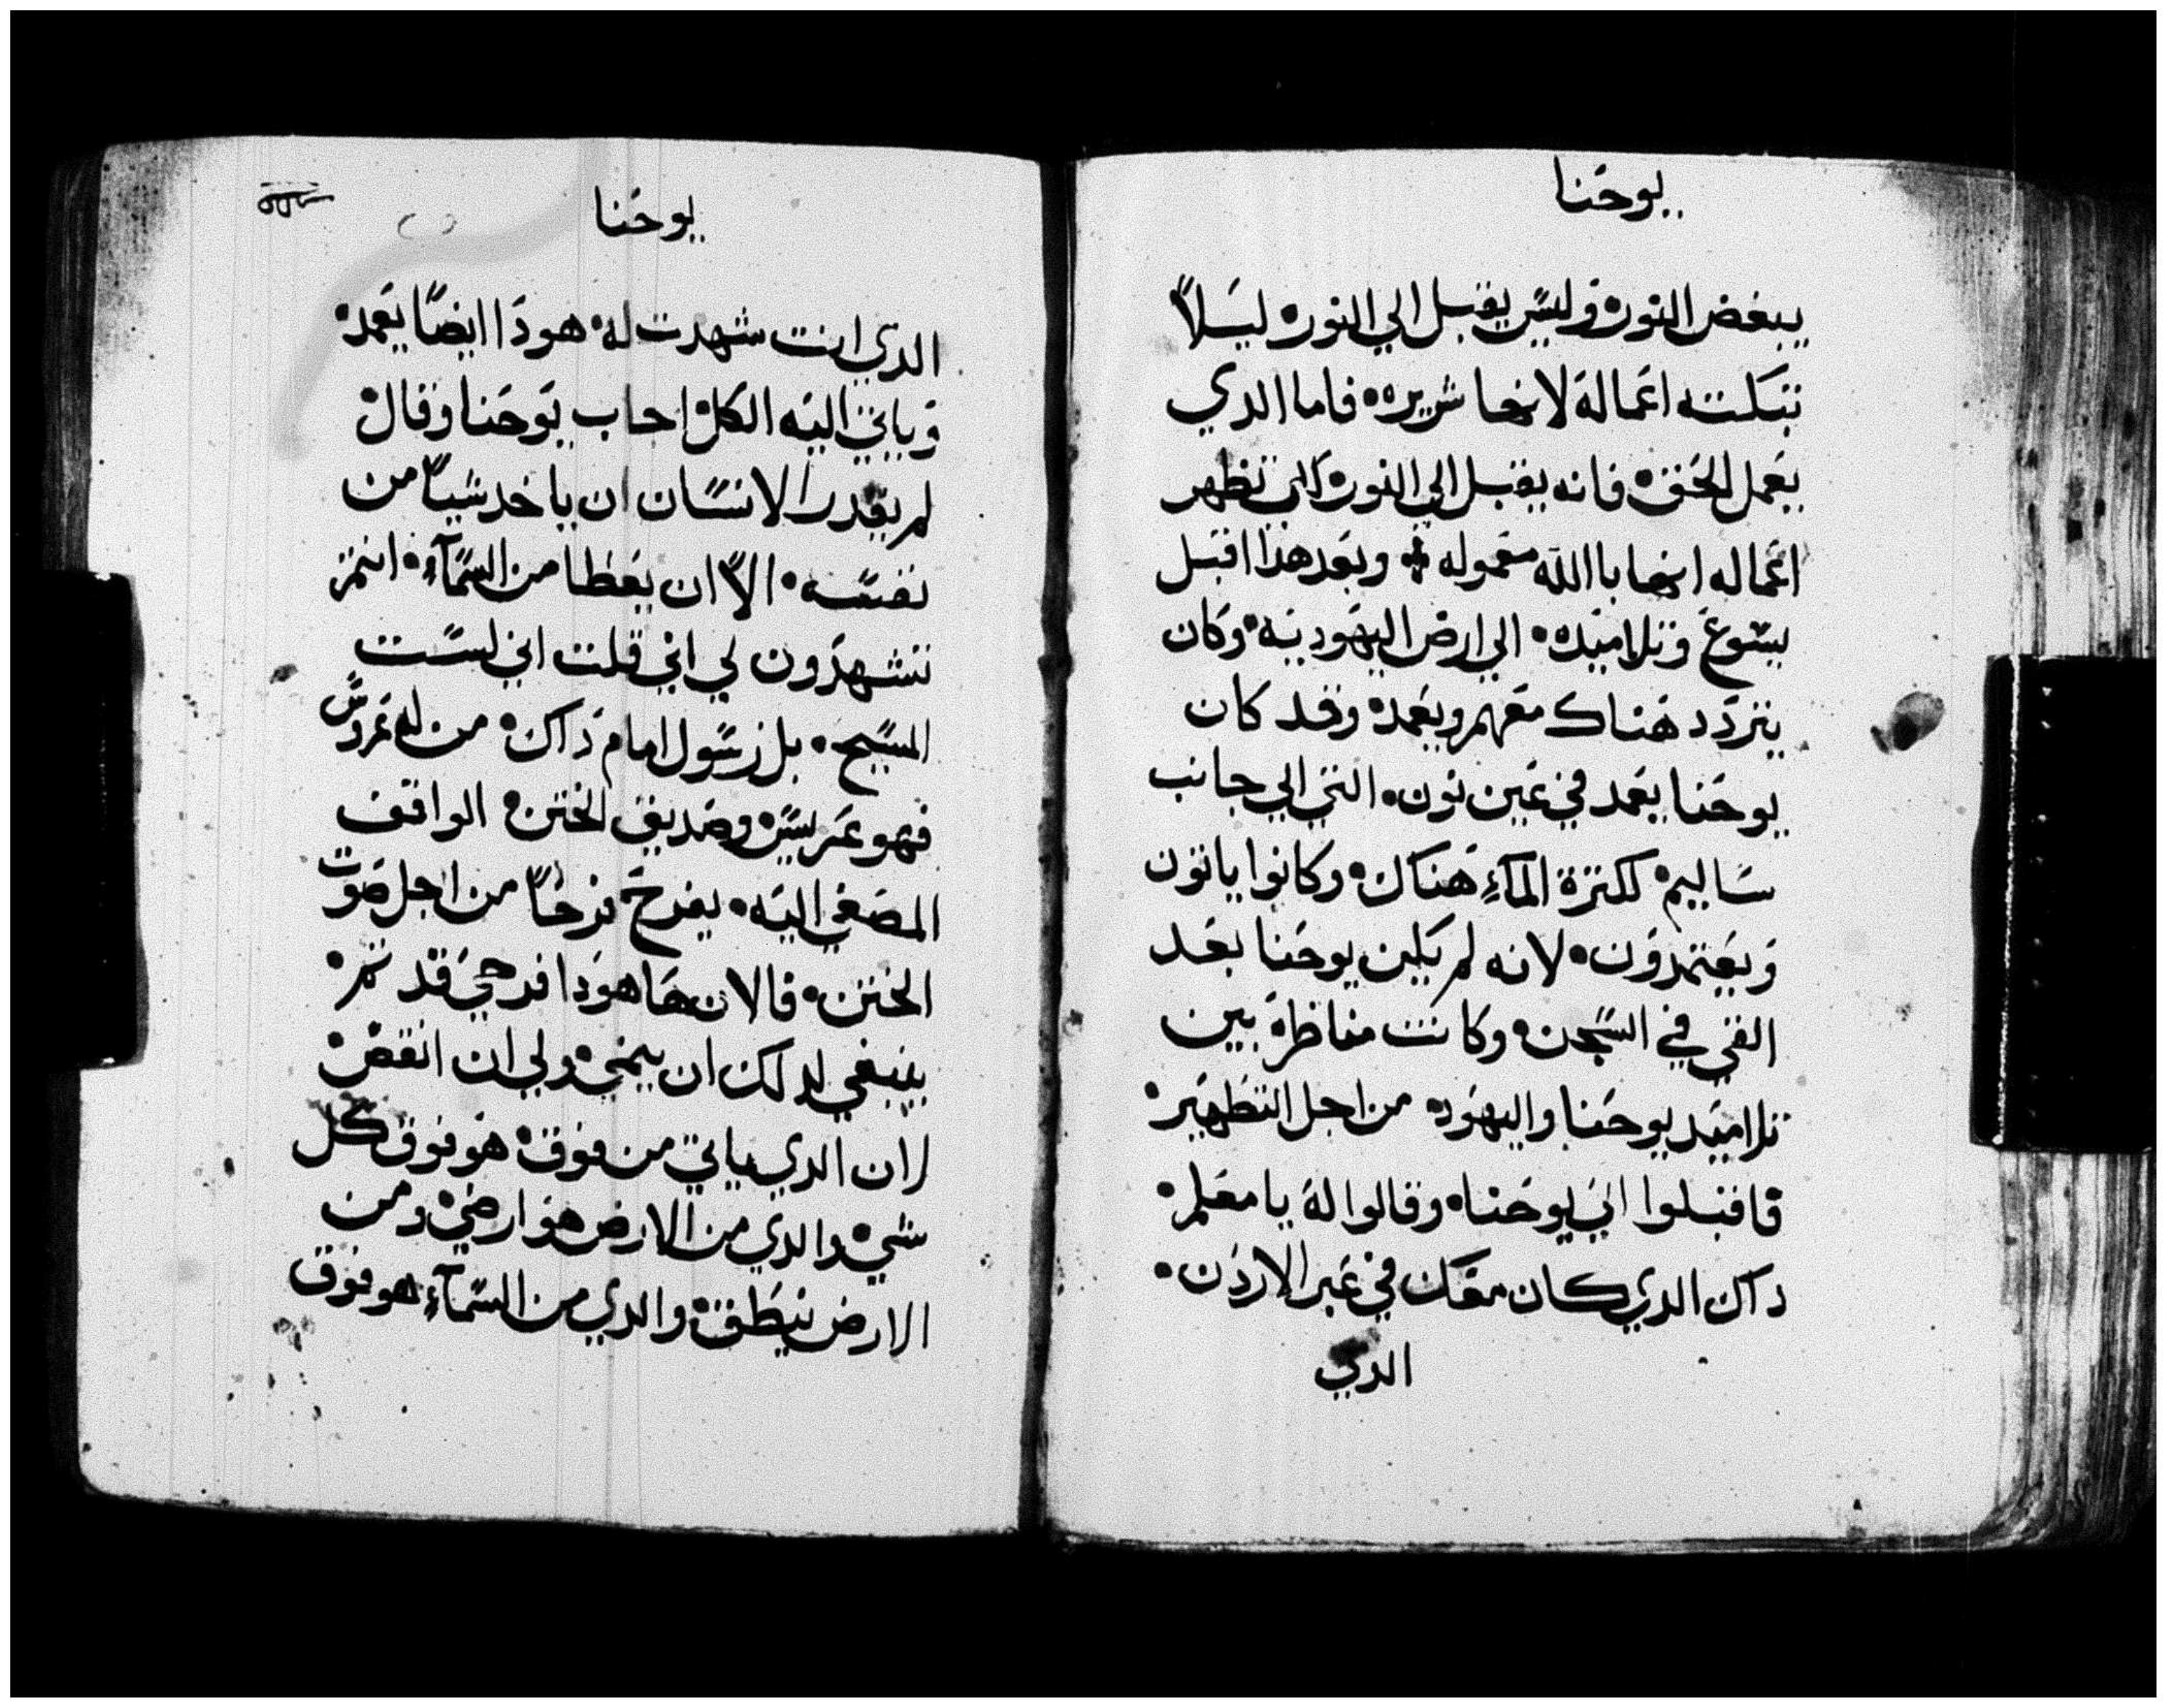 يوحنا
يبغض النور وليس يقبل الي النور ليلاً
تبكته اعماله لانها شريره فاما الدي
يعمل الحق فانه يقبل الي النور لكي تظهر
اعماله انها باالله معموله وبعد هذا اقبل
يسوع وتلاميده الي ارض اليهودية وكان
يتردد هناك معهم ويعمد وقد كان
يوحنا يعمد في عين نون التي الي جانب
ساليم لكثرة المآء هناك وكانوا ياتون
ويعتمدون لانه لم يكن يوحنا بعد
القي في السجن وكانت مناظرة بين
تلاميد يوحنا واليهود من اجل التطهير
فاقبلوا الي يوحنا وقالوا له يا معلم
داك الدي كان معك في عبر الاردن
الدي
يوحنا
الدي انت شهدت له هودا ايضاً يعمد
وياتي اليه الكل اجاب يوحنا وقال
لم يقدر الانسان ان ياخد شياً من
نفسه الا ان يعطا من السمآء انتم
تشهدون لي اني قلت اني لست
المسيح بل رسول امام داك من له عروس
فهو عريس وصديق الختن الواقف
المصغي اليه يفرح فرحاً من اجل صوت
الختن فالان ها هودا فرحي قد تم
ينبغي لدلك ان ينمي ولي ان انقص
لان الدي ياتي من فوق هو فوق كل
شي والدي من الارض هو ارضي ومن
الارض ينطق والدي من السمآء هو فوق